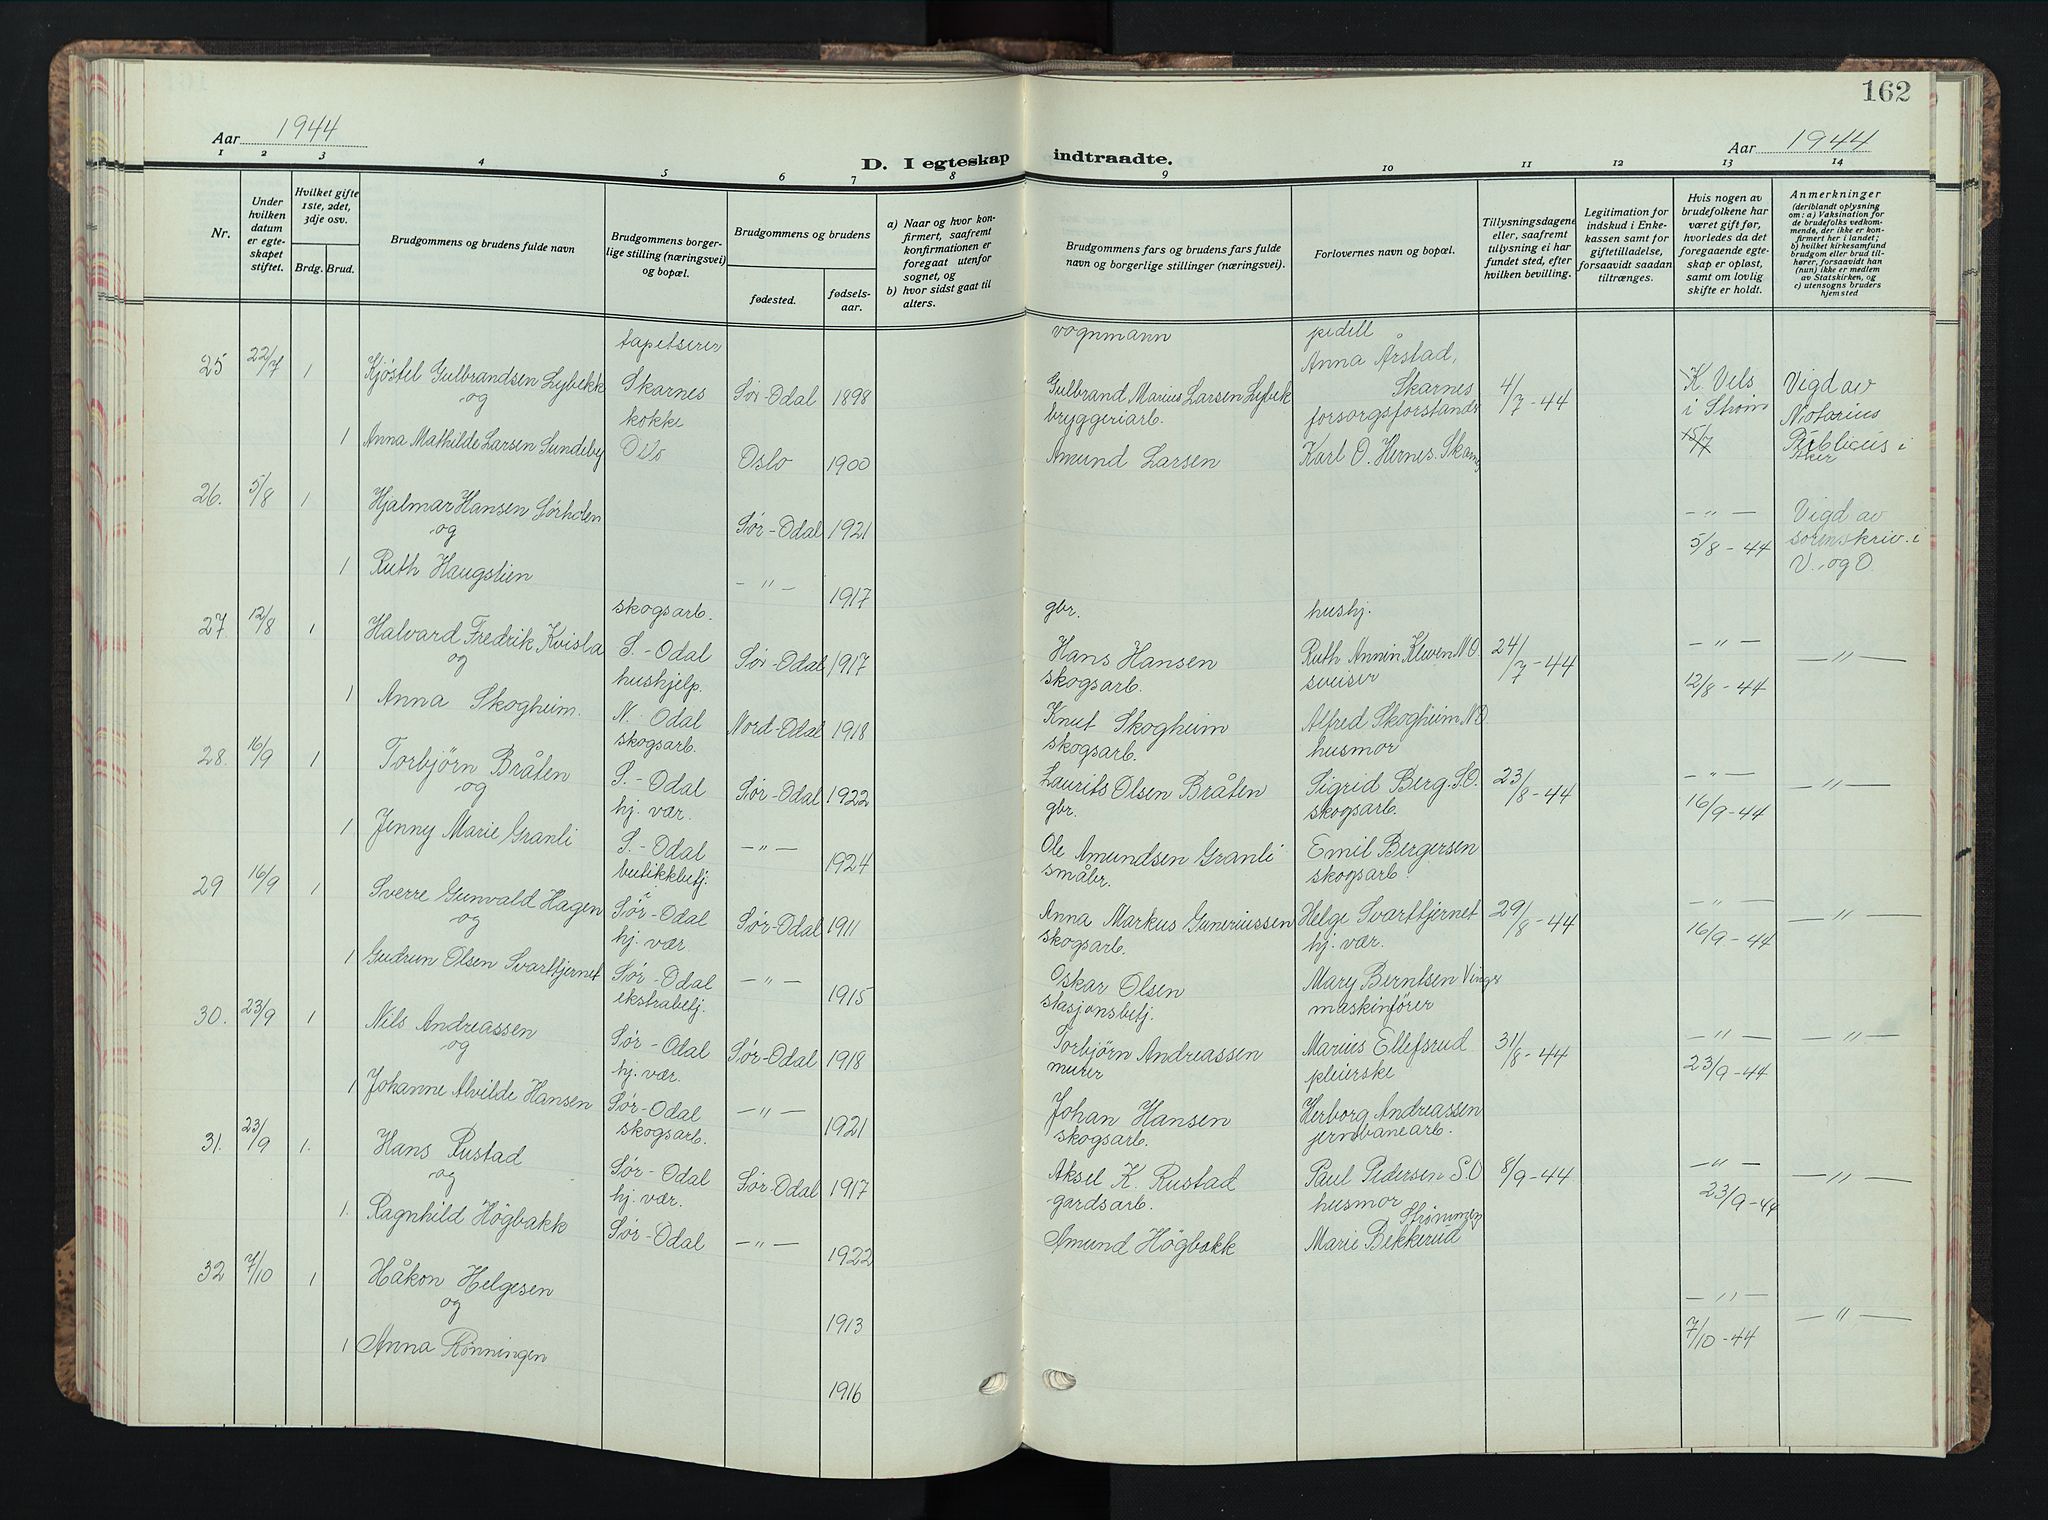 162
Aar 1944
D. I egteskap indtraadte.
Aar 1944
1 2 3 4 5 6 7 8 9 10 11 12 13 14
Nr.
Under hvilken datum er egteskapet stiftet.
Hvilket gifte 1ste, 2det, 3dje osv.
Brdg. Brud.
Brudgommens og brudens fulde navn
Brudgommens borgerlige stilling (næringsvei) og bopæl.
Brudgommens og brudens
fødested. fødselsaar.
a) Naar og hvor konfirmert, saafremt konfirmationen er foregaat utenfor sognet, og
b) hvor sidst gaat til alters.
Brudgommens fars og brudens fars fulde navn og borgerlige stillinger (næringsvei).
Forlovernes navn og bopæl.
Tillysningsdagene eller, saafremt tillysning ei har fundet sted, efter hvilken bevilling.
Legitimation for indskud i Enkekassen samt for giftetilladelse, forsaavidt saadan tiltrænges.
Hvis nogen av brudefolkene har været gift før, hvorledes da det foregaaende egteskap er opløst, samt om lovlig skifte er holdt.
Anmerkninger
(deriblandt oplysning om: a) Vaksination for de brudefolks vedkommende, der ikke er konfirmert her i landet; b) hvilket kirkesamfund brudgom eller brud tilhører, forsaavidt han (hun) ikke er medlem av Statskirken, og c) utensogns bruders hjemsted
tapetserer vognmann pedell
25 22/7 1 Kjøstel Gulbrandsen Lybekk Skarnes Sør-Odal 1898 Gulbrand Marius Larsen Lybek Anna Årstad, Skarnes 4/7-44 K. Vels i Strøm Vigd av Notarius
og kokke bryggeriarb. forsorgsforstander
1 Anna Mathilde Larsen Sundeby Oslo Oslo 1900 Amund Larsen Karl O. Hernes. Skarnes 15/7 Publicus i Aker
26. 5/8 1 Hjalmar Hansen Sørholen Sør-Odal 1921 — " — Vigd av
og 5/8-44 sorenskriv. i
1 Ruth Haugstien — " — 1917 V. og O
skogsarb. gbr. hushj.
27 12/8 1 Halvard Fredrik Kvisla S.-Odal Sør-Odal 1917 Hans Hansen Ruth Annin Kleven N O 24/7-44 — " — — " —
og hushjelp. skogsarb. sveiser 12/8-44
1 Anna Skogheim. N. Odal Nord-Odal 1918 Knut Skogheim Alfred Skogheim N O.
skogsarb. skogsarb. husmor
28. 16/9 1 Torbjørn Bråten S.-Odal Sør-Odal 1922 Laurits Olsen Bråten Sigrid Berg. S.O. 23/8-44 — " — — " —
og hj. vær. gbr. skogsarb. 16/9-44
1 Jenny Marie Granli S.-Odal — " — 1924 Ole Amundsen Granli Emil Bergersen
butikkbetj. småbr. skogsarb.
29 16/9 1 Sverre Gunvald Hagen Sør-Odal Sør-Odal 1911 Anna Markus Guneriussen Helge Svarttjernet 29/8-44 — " — — " —
og hj. vær. skogsarb. hj. vær. 16/9-44
1 Gudrun Olsen Svarttjernet Sør-Odal — " — 1915 Oskar Olsen Mary Berntsen Vinger
ekstrabetj. stasjonsbetj. maskinfører
30. 23/9 1 Nils Andreassen Sør-Odal Sør-Odal 1918 Torbjørn Andreassen Marius Ellefsrud 31/8-44 — " — — " —
og hj. vær. murer pleierske 23/9-44
1 Johanne Alvilde Hansen Sør-Odal — " — 1921 Johan Hansen Herborg Andreassen
skogsarb. skogsarb. jernbanearb.
31. 23/9 1. Hans Rustad Sør-Odal Sør-Odal 1917 Aksel K. Rustad Paul Pedersen S.O 8/9-44 — " — — " —
og hj. vær. gardsarb. husmor 23/9-44
1. Ragnhild Högbakk Sør-Odal — " — 1922 Amund Högbakk Marie Bekkerud Strømmen
32 7/10 1 Håkon Helgesen 1913 — " — — " —
og 7/10-44
1 Anna Rønningen 1916